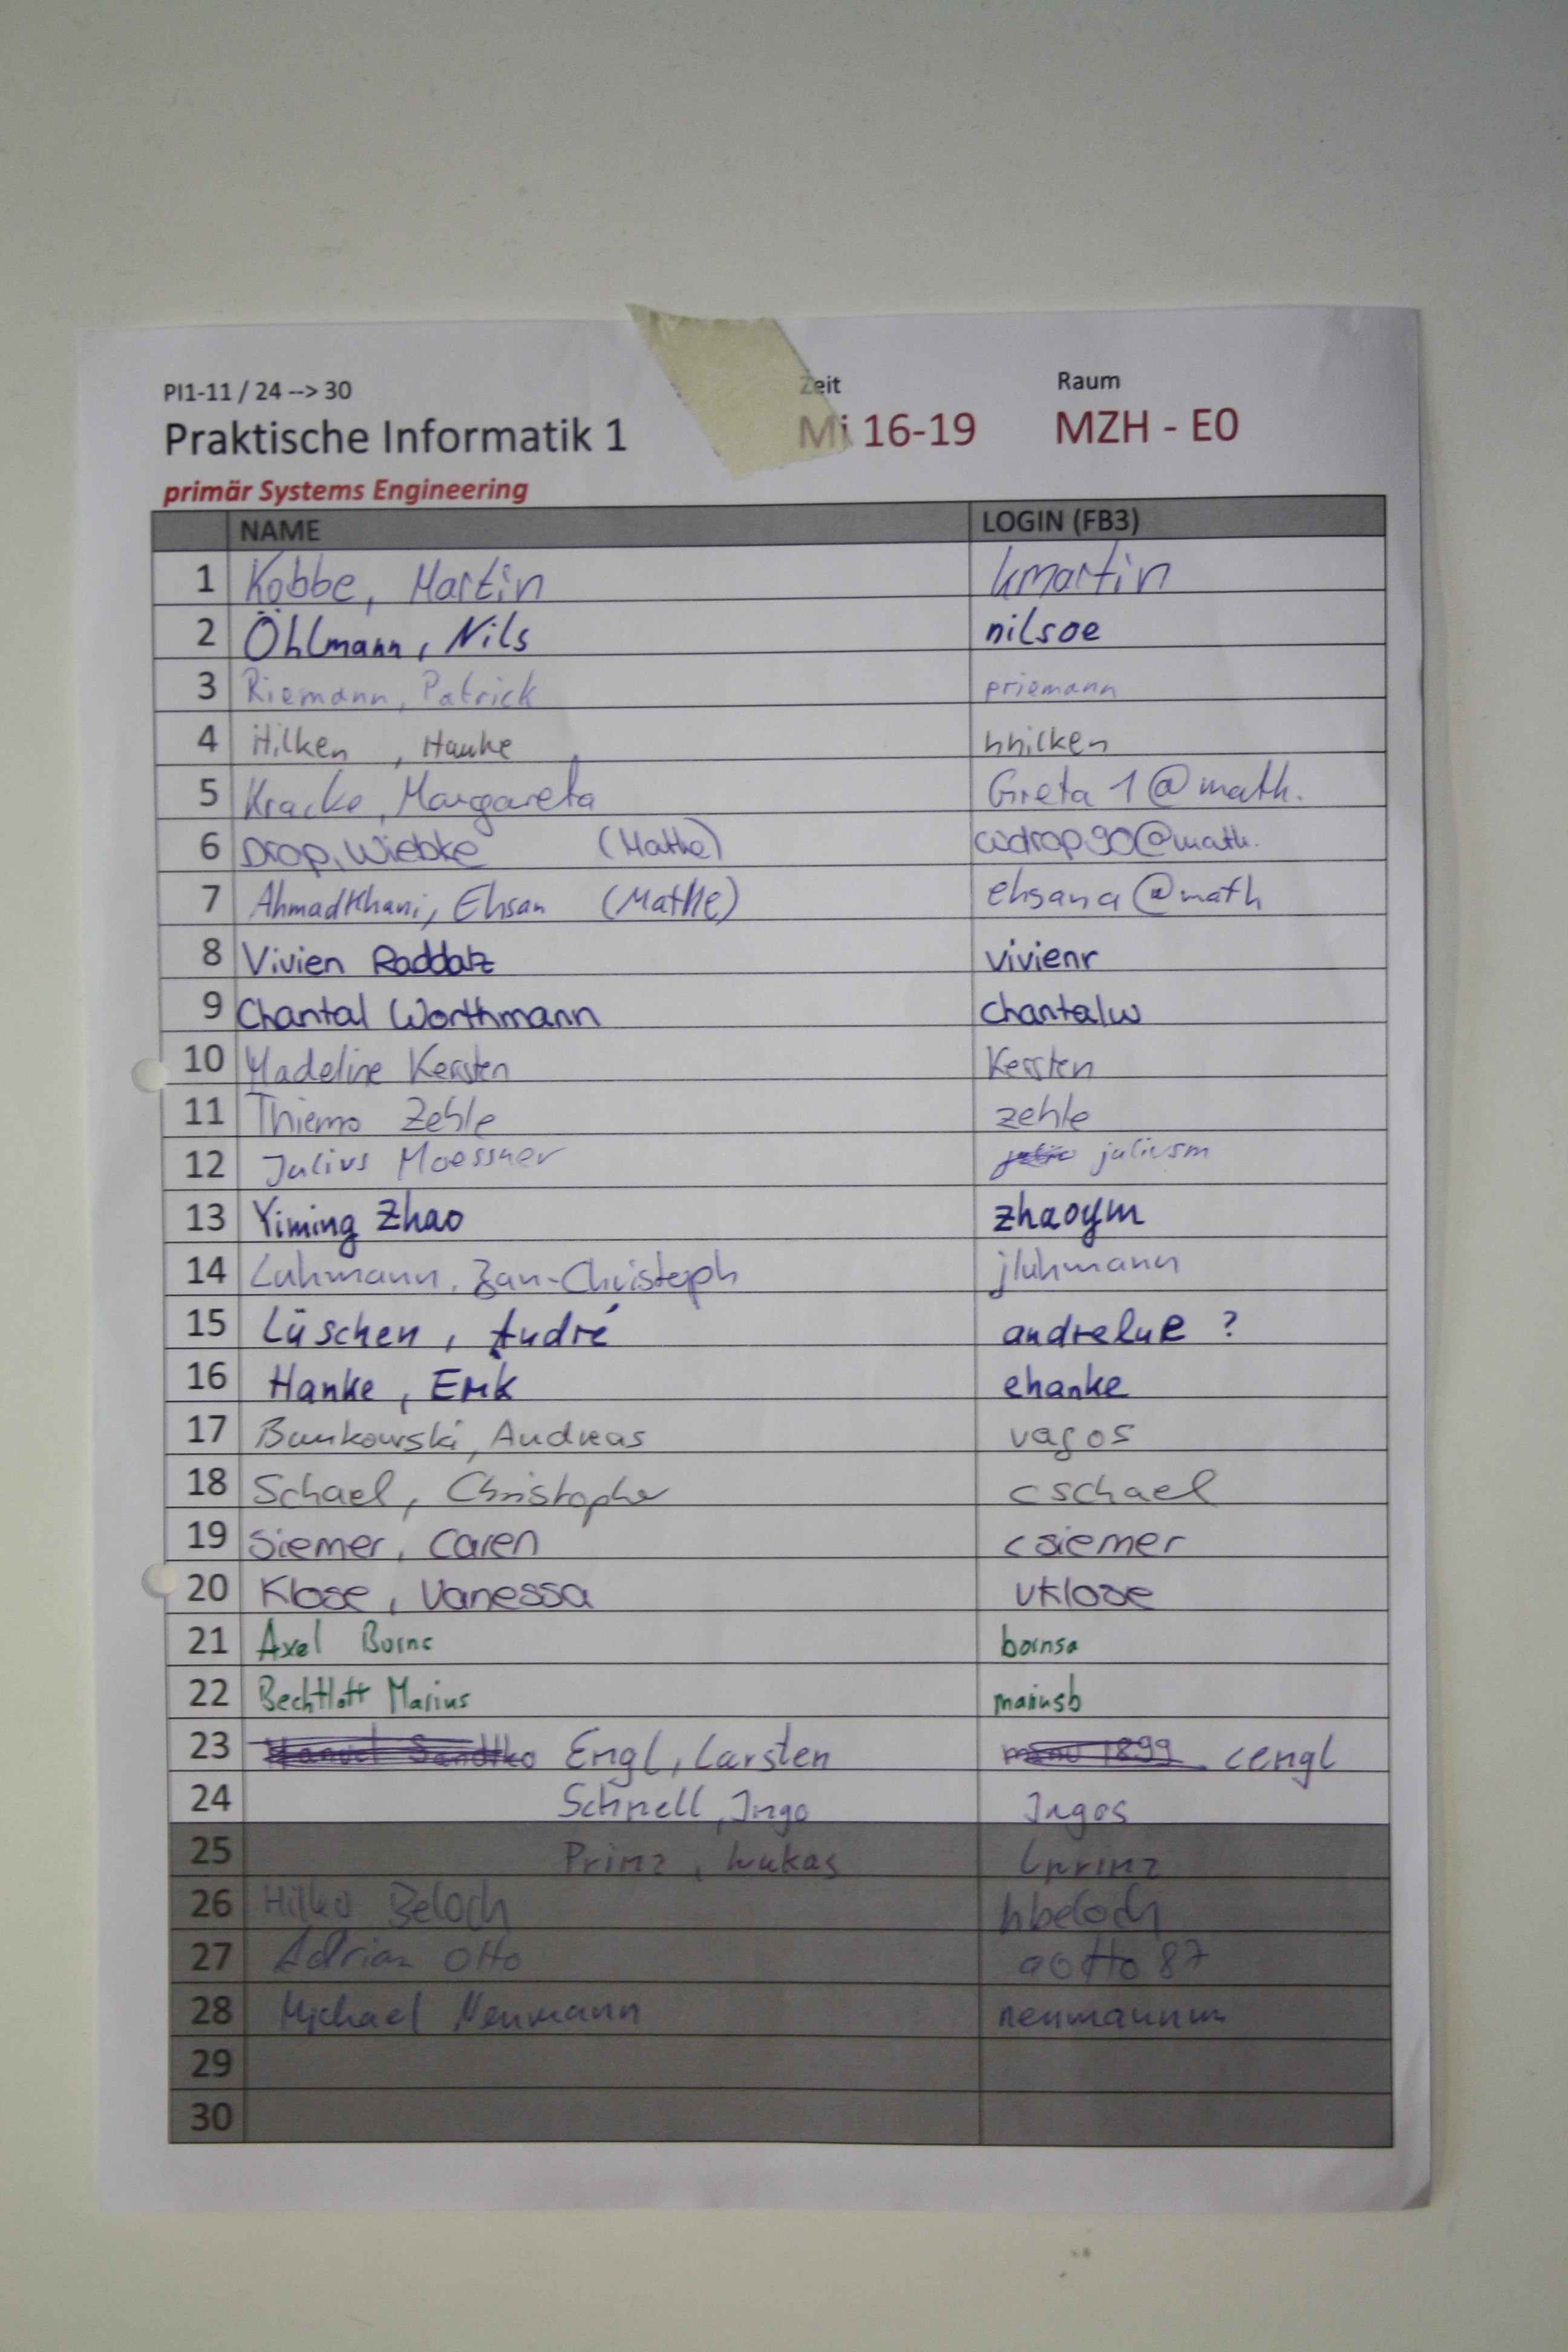 PI1-11 / 24 --> 30 Zeit Raum
Praktische Informatik 1 Mi 16-19 MZH - E0
primär Systems Engineering
NAME LOGIN (FB3)
1 Kobbe, Martin kmartin
2 Öhlmann, Nils nilsoe
3 Riemann, Patrick priemann
4 Hilken, Hauke hhilken
5 Kracke, Margareta Greta1@math.
6 Drop, Wiebke (Mathe) wdrop90@math.
7 AhmadKhani, Ehsan (Mathe) ehsana@math
8 Vivien Raddatz vivienr
9 Chantal Worthmann chantalw
10 Madeline Kersten Kersten
11 Thiemo Zehle zehle
12 Julius Moessner juliusm
13 Yiming Zhao zhaoym
14 Luhmann, Jan-Christoph jluhmann
15 Lüschen, André andrelue ?
16 Hanke, Erik ehanke
17 Bunkowski, Andreas vagos
18 Schael, Christopher cschael
19 Siemer, Caren csiemer
20 Klose, Vanessa vklose
21 Axel Borns bornsa
22 Bechtloff Marius mariusb
23 Engl, Carsten cengl
24 Schnell, Ingo Ingos
25 Prinz, Lukas lprinz
26 Hilko Beloch hbeloch
27 Adrian Otto aotto87
28 Michael Neumann neumannm
29
30